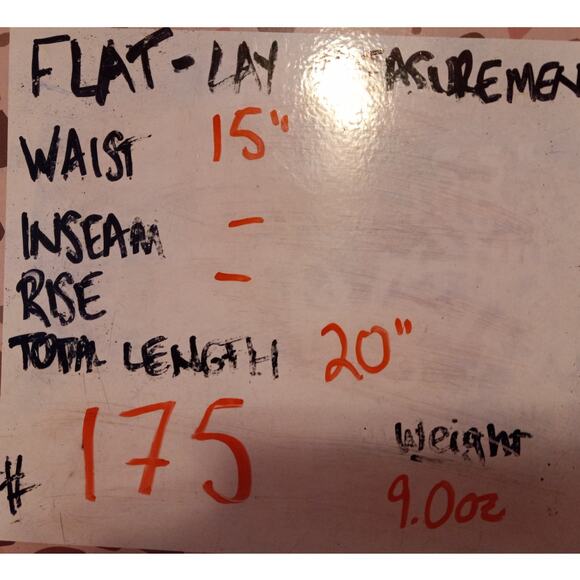 FLAT-LAY MEASUREMEN
WAIST 15"
INSEAM -
RISE -
TOTAL LENGTH 20"
# 175
Weight
9.0oz